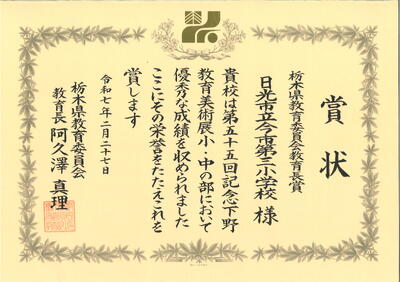 賞状
栃木県教育委員会教育長賞
日光市立今市第三小学校 様
貴校は第五十五回記念下野
教育美術展小・中の部において
優秀な成績を収められました
ここにその栄誉をたたえこれを
賞します
令和七年二月二十七日
栃木県教育委員会
教育長 阿久澤 真理